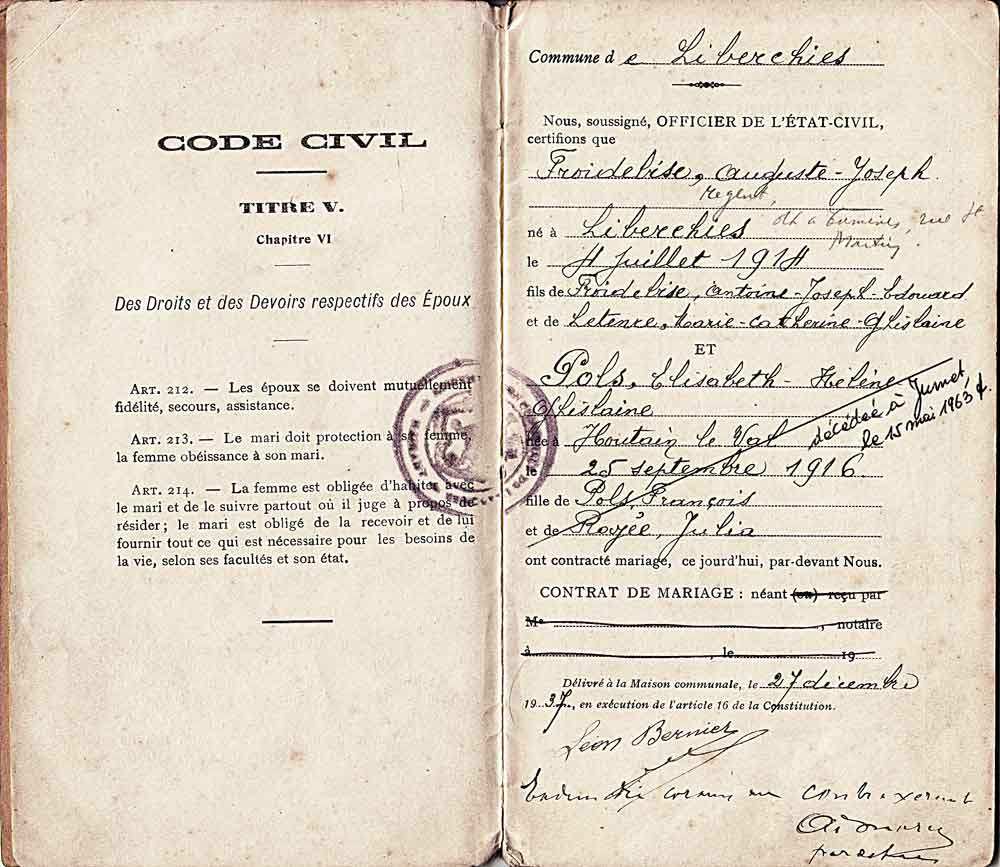 CODE CIVIL
TITRE V.
Chapitre VI
Des Droits et des Devoirs respectifs des Époux
ART. 212. — Les époux se doivent mutuellement
fidélité, secours, assistance.
ART. 213. — Le mari doit protection à sa femme,
la femme obéissance à son mari.
ART. 214. — La femme est obligée d'habiter avec
le mari et de le suivre partout où il juge à propos de
résider ; le mari est obligé de la recevoir et de lui
fournir tout ce qui est nécessaire pour les besoins de
la vie, selon ses facultés et son état.
Commune de Liberchies
Nous, soussigné, OFFICIER DE L'ÉTAT-CIVIL,
certifions que
Froidebise, Auguste-Joseph
Régent, rue St
né à Liberchies
Martin
le 4 Juillet 1914
fils de Froidebise, Antoine-Joseph-Edouard
et de Letence, Marie-Catherine-Ghislaine
ET
Pols, Elisabeth-Hélène
Ghislaine
décédée à Jumet,
le 15 mai 1963
née à Houtain le Val
le 25 septembre 1916
fille de Pols, François
et de Rayée, Julia
ont contracté mariage, ce jourd'hui, par-devant Nous.
CONTRAT DE MARIAGE : néant (ou) reçu par
Me , notaire
à , le 19
Délivré à la Maison communale, le 27 décembre
1937, en exécution de l'article 16 de la Constitution.
Léon Bernier